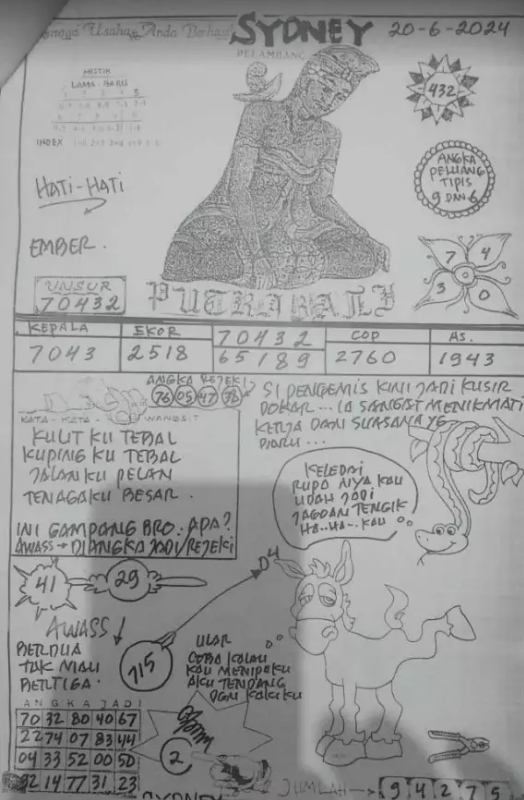 SYDNEY 20-6-2024
Usaha Anda Berhasil
PELAMBANG
MISTIK
LAMA BARU
INDEX
432
HATI-HATI
ANGKA
PELUANG
TIPIS
9 DAN 6
EMBER.
UNSUR
70432
7 4
3 0
PUTRA BALI
KEPALA EKOR 70432 COP AS.
7043 2518 65189 2760 1943
ANGKA REJEKI
76 05 47 78
KATA-KATA WANGSIT
KULIT KU TEBAL
KUPING KU TEBAL
JALANKU PELAN
TENAGAKU BESAR.
INI GAMPANG BRO. APA?
AWASS → DIANGKA JADI/REJEKI
SI PENGEMIS KINI JADI KUSIR
DOKAR... IA SANGAT MENIKMATI
KERJA DAN SUASANA YG
BARU...
KELEDAI
RUPA NYA KAU
UDAH JADI
JAGOAN TENGIK
HA..HA.. KAU
41
29
04
AWASS
BERDUA
TAK MAU
BERTIGA.
715
ULAR
COBA KALAU
KAU MENIPUKU
AKU TENDANG
DGN KAKIKU
ANGKA JADI
70 32 80 40 67
22 74 07 83 44
04 33 52 00 50
92 14 77 31 23
2
JUMLAH → 9 4 2 7 5
SYDNEY